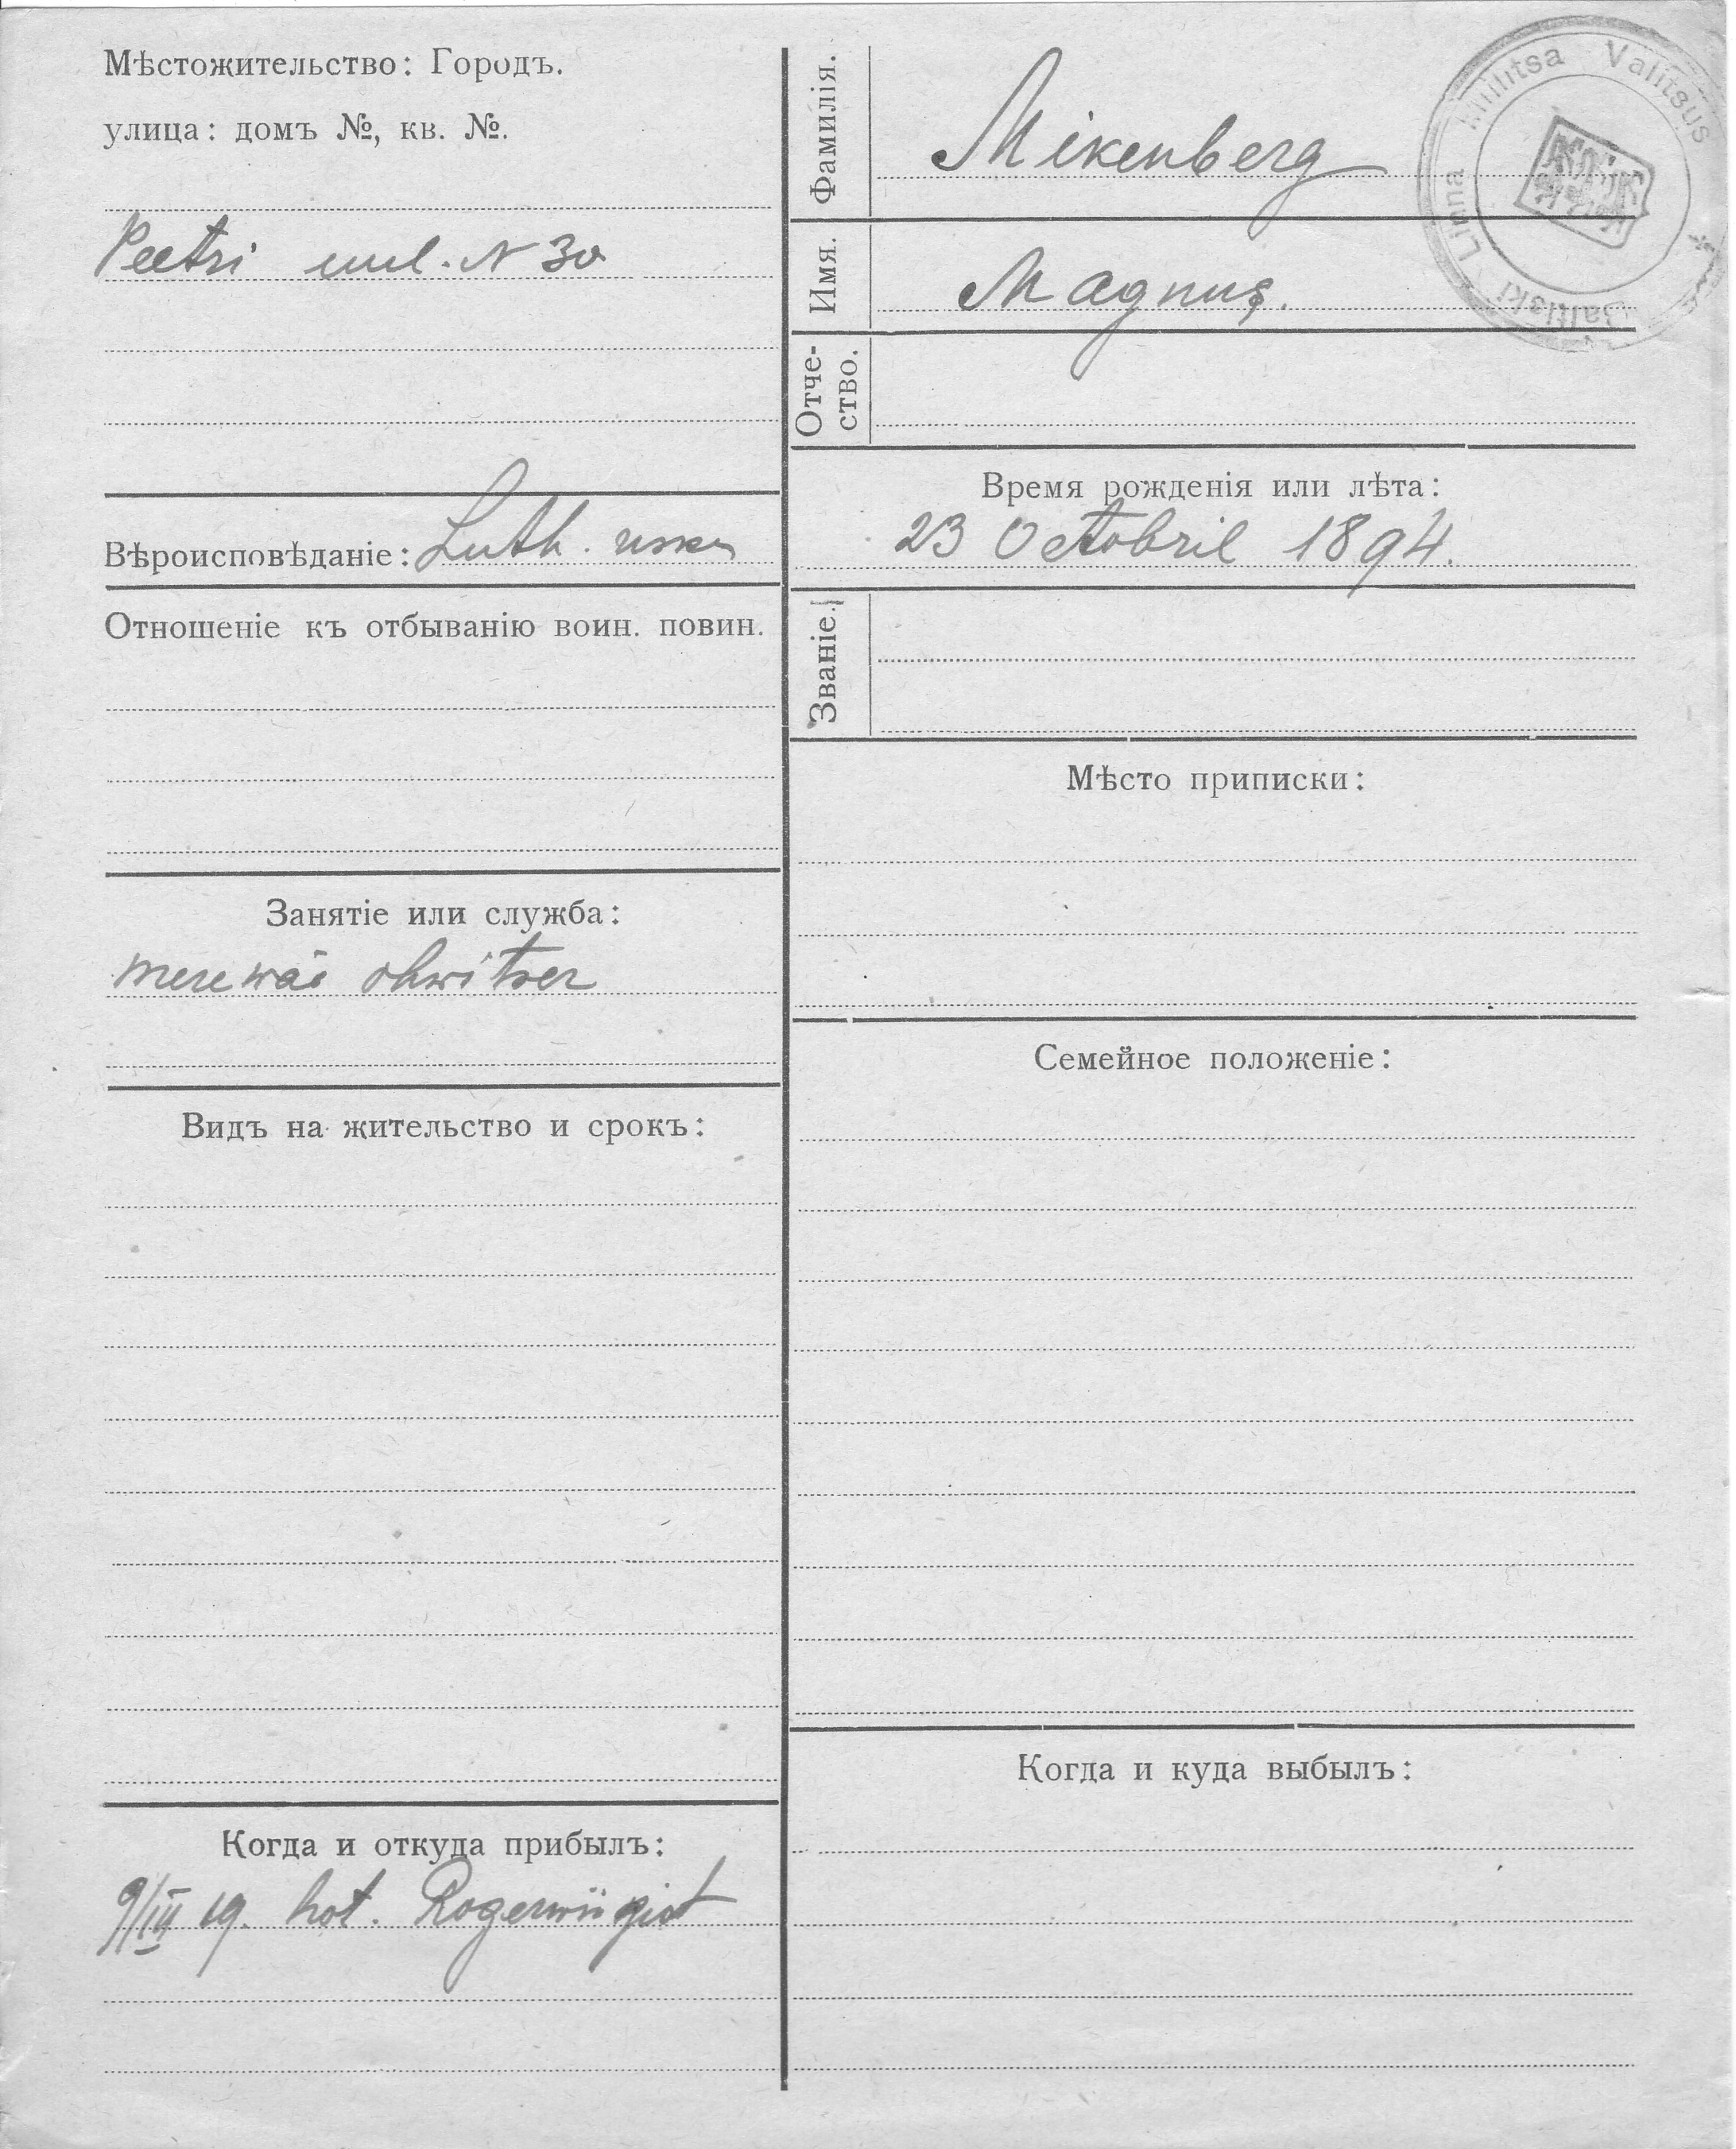 Мѣстожительство: Городъ.
улица: домъ №, кв. №.
Peetri uul. N 30
Вѣроисповѣданіе: Luth. usku
Отношеніе къ отбыванію воин. повин.
Занятіе или служба:
merewäe ohwitser
Видъ на жительство и срокъ:
Когда и откуда прибылъ:
9/III 19. hot. Rogerwiigist
Фамилія.
Mikenberg
Имя.
Magnus.
Отче-
ство.
Время рожденія или лѣта:
23 Octobril 1894.
Званіе.
Мѣсто приписки:
Семейное положеніе:
Когда и куда выбылъ:
Baltiski Linna Miilitsa Valitsus